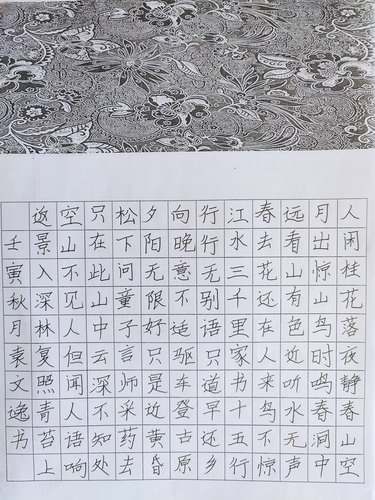 人闲桂花落夜静春山空
月出惊山鸟时鸣春涧中
远看山有色近听水无声
春去花还在人来鸟不惊
江水三千里家书十五行
行行无别语只道早还乡
向晚意不适驱车登古原
夕阳无限好只是近黄昏
松下问童子言师采药去
只在此山中云深不知处
空山不见人但闻人语响
返景入深林复照青苔上
壬寅秋月袁文逸书